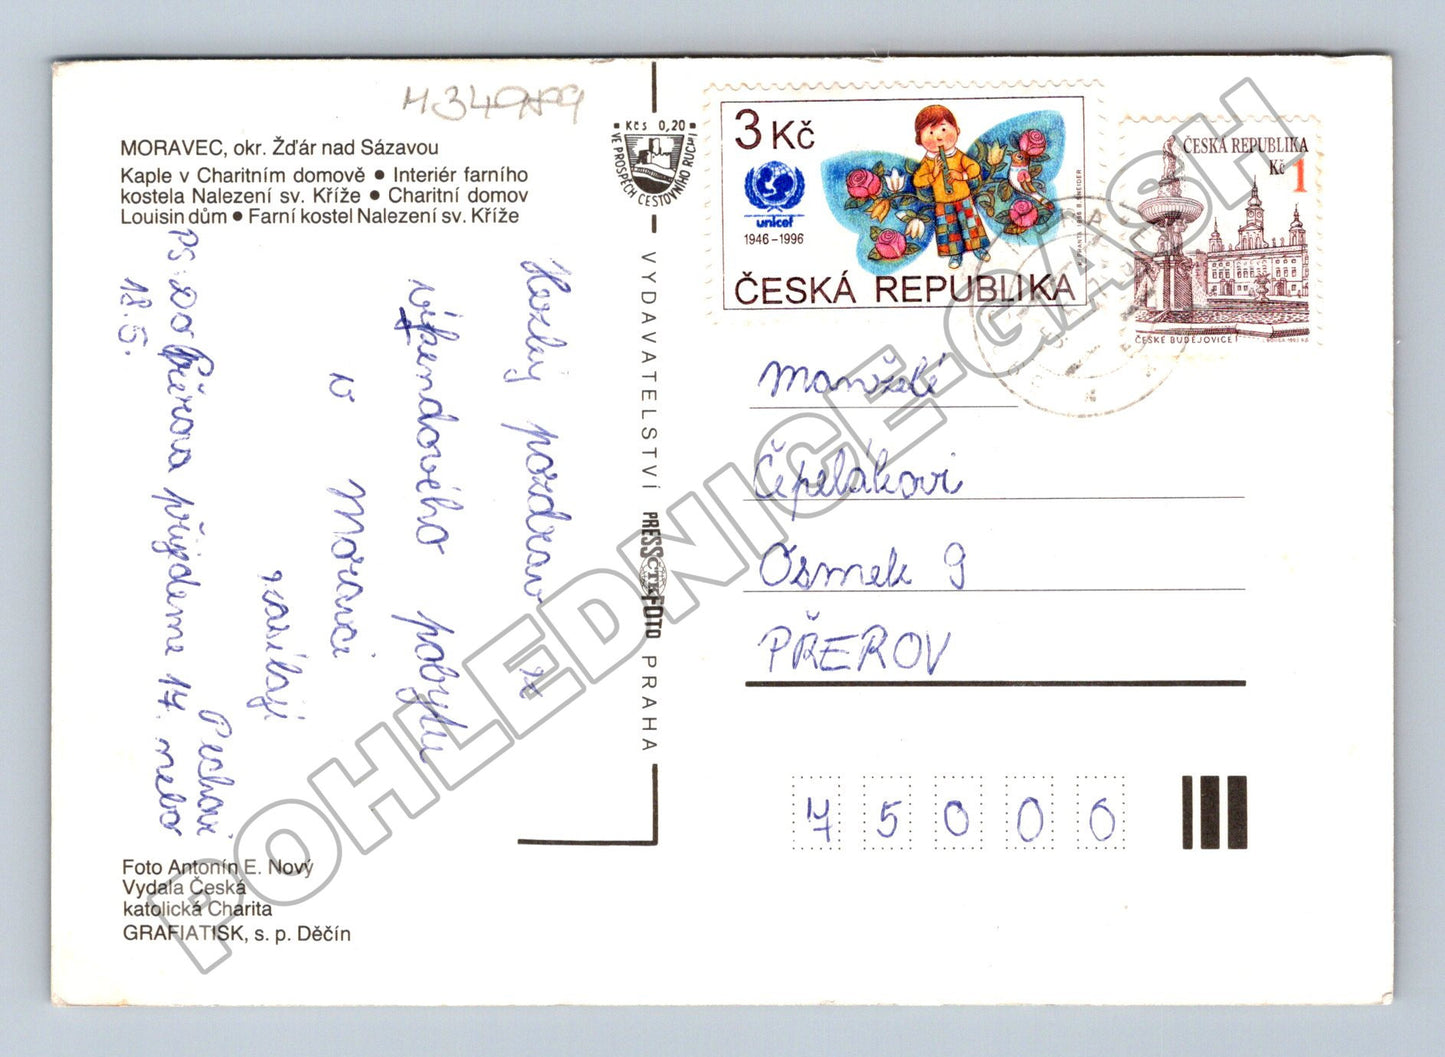 M34989
MORAVEC, okr. Žďár nad Sázavou
Kaple v Charitním domově ● Interiér farního
kostela Nalezení sv. Kříže ● Charitní domov
Louisin dům ● Farní kostel Nalezení sv. Kříže
Hezký pozdrav z
víkendového pobytu
v Moravci
zasílají
Pechovi
Ps: Do Přerova přijdeme 17. nebo
18.5.
Foto Antonín E. Nový
Vydala Česká
katolická Charita
GRAFIATISK, s. p. Děčín
Kčs 0,20
VE PROSPĚCH CESTOVNÍHO RUCHU
VYDAVATELSTVÍ PRESSFOTO PRAHA
ČTK
3 Kč
unicef
1946–1996
ČESKÁ REPUBLIKA
ČESKÁ REPUBLIKA
Kč 1
ČESKÉ BUDĚJOVICE
Manželé
Čepelákovi
Osmek 9
PŘEROV
75000
POHLEDNICE-GASH